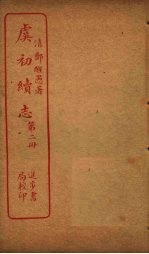 清鄭醒愚著
虞初續志 第二冊
進步書
局校印